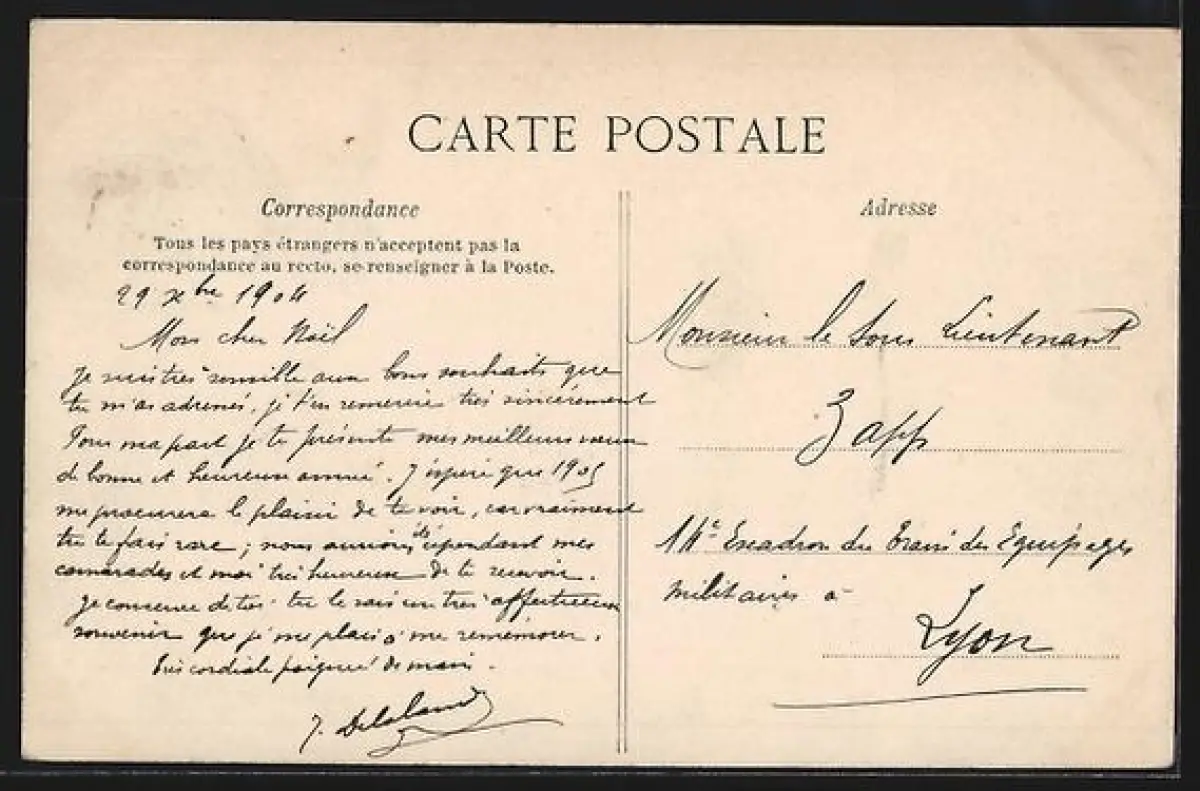 CARTE POSTALE
Correspondance
Tous les pays étrangers n'acceptent pas la
correspondance au recto, se renseigner à la Poste.
29 xbre 1904
Mon cher Noël
Je suis très sensible aux bons souhaits que
tu m'as adressés, je t'en remercie très sincèrement
Pour ma part je te présente mes meilleurs vœux
de bonne et heureuse année. J'espère que 1905
me procurera le plaisir de te voir, car vraiment
tu te fais rare ; nous aurions été cependant mes
camarades et moi très heureux de te recevoir.
Je conserve de toi tu le sais un très affectueux
souvenir que je me plais à me remémorer.
Très cordiale poignée de main.
J. Delaland
Adresse
Monsieur le Sous Lieutenant
Zapp
14e Escadron du Train des Equipages
militaires à
Lyon